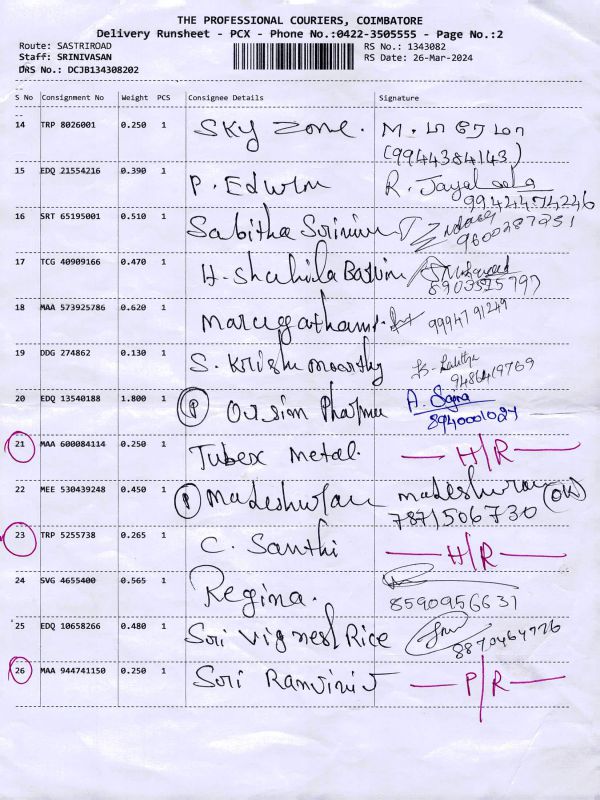 THE PROFESSIONAL COURIERS, COIMBATORE
Delivery Runsheet - PCX - Phone No.:0422-3505555 - Page No.:2
Route: SASTRIROAD RS No.: 1343082
Staff: SRINIVASAN RS Date: 26-Mar-2024
DRS No.: DCJB134308202
S No Consignment No Weight PCS Consignee Details Signature
14 TRP 8026001 0.250 1 Sky Zone. M.
(9944384143)
15 EDQ 21554216 0.390 1 P. Edwin R.
9942474246
16 SRT 65195001 0.510 1 Sabitha
9600287951
17 TCG 40909166 0.470 1 H. Shahila
18 MAA 573925786 0.620 1
9994791249
19 DDG 274862 0.130 1 S. Krishnamoorthy
9486419769
20 EDQ 13540188 1.800 1 P Pharma A. Sajna
8940001024
21 MAA 600084114 0.250 1 Tubex Metal. H/R
22 MEE 530439248 0.450 1 P Madeshwaran madeshwaran
7871506730
23 TRP 5255738 0.265 1 C. Santhi H/R
24 SVG 4655400 0.565 1 Regina.
8590956631
25 EDQ 10658266 0.480 1 Sori Vignesh Rice
8870464726
26 MAA 944741150 0.250 1 Sori P/R